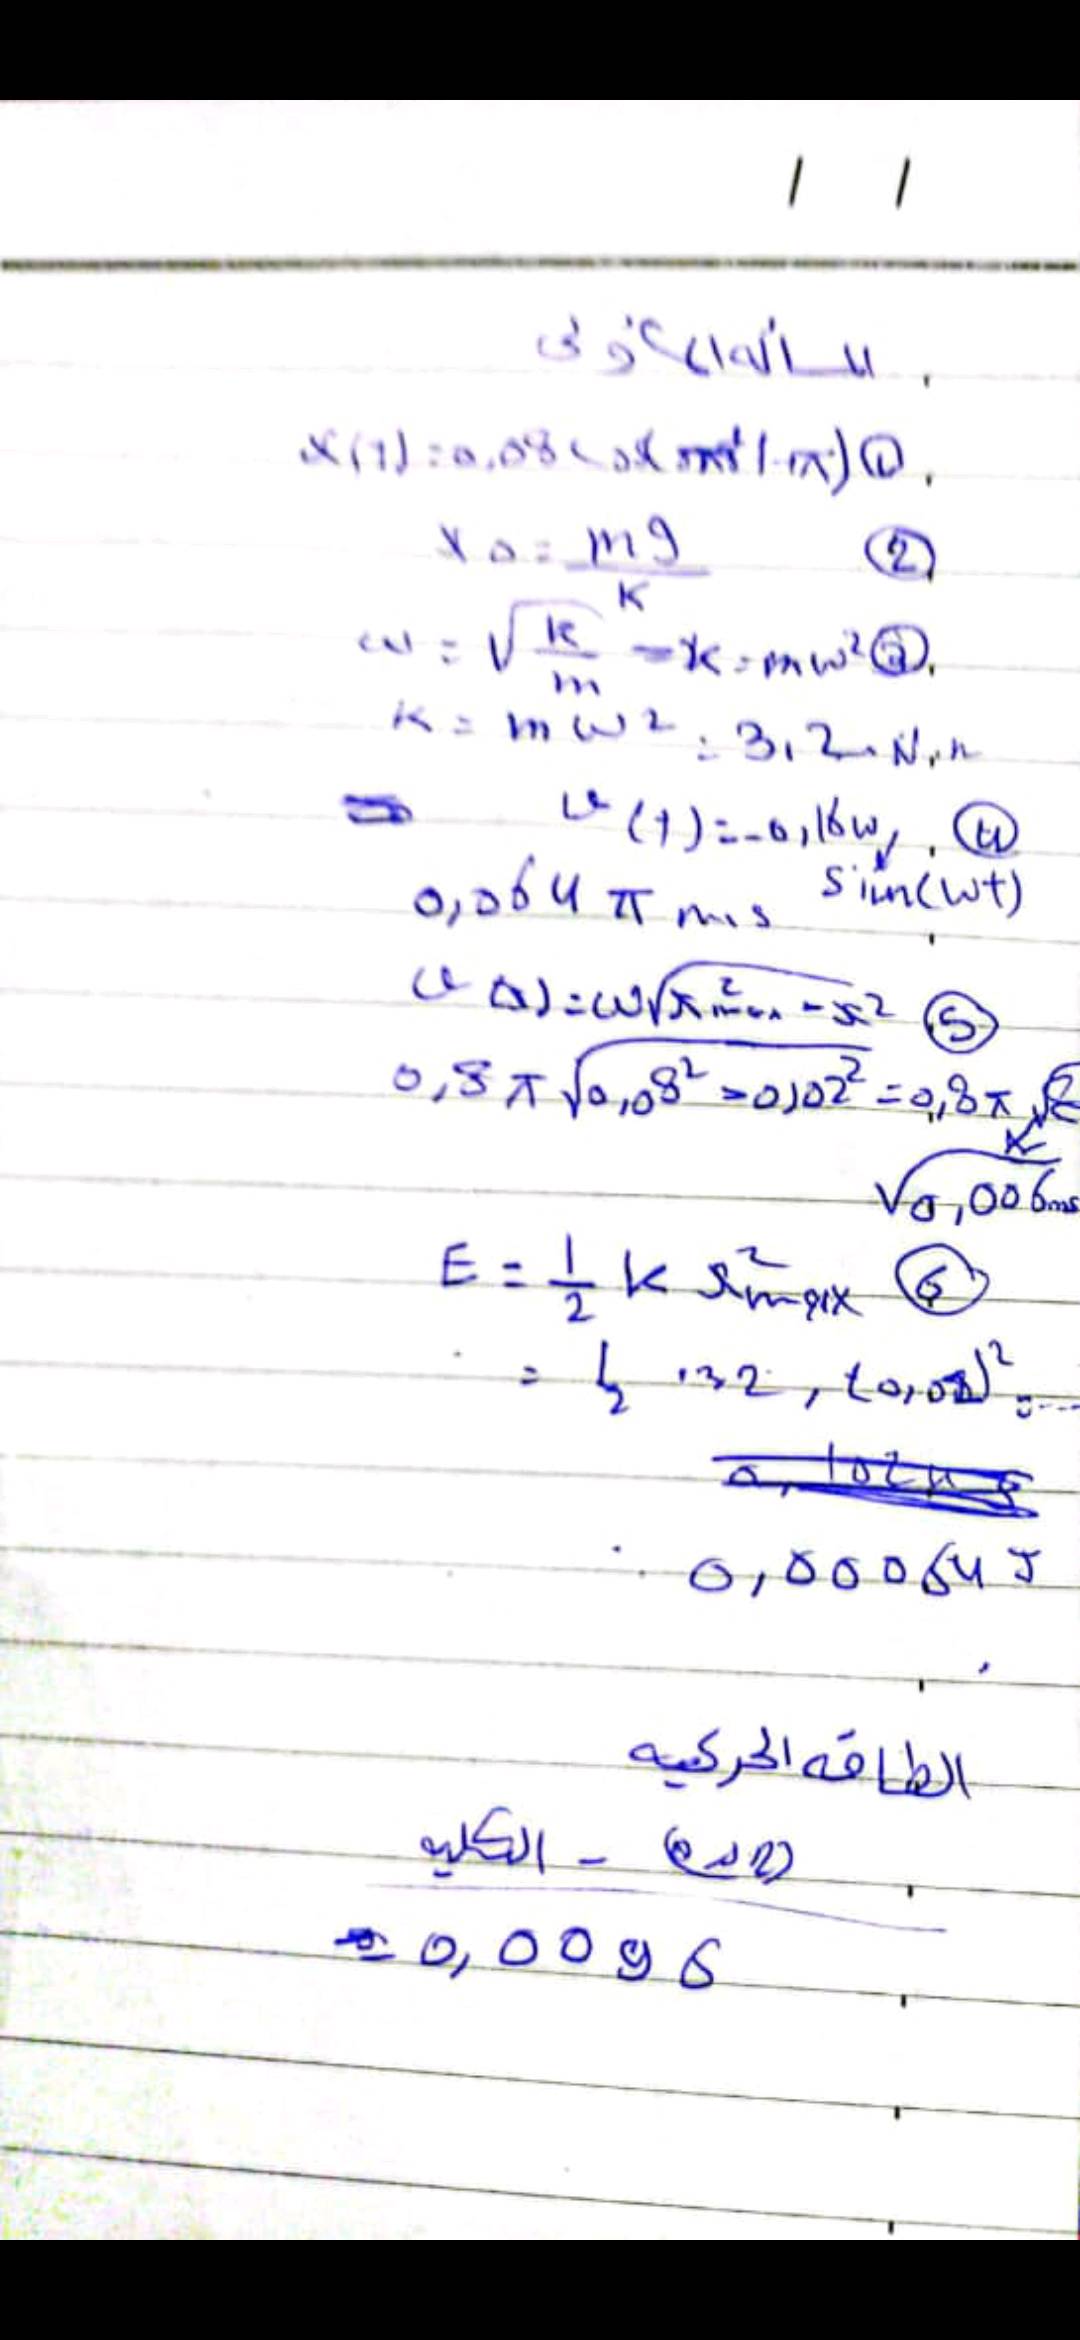 المسألة الأولى
x(t)=0,08 cos(πt+π) ①
x₀ = mg/k ②
ω = √(k/m) - k = mω² ③
k = mω² = 3,2 N.m
v(t) = -0,16ω, ④
sin(ωt)
0,064 π m.s
v(x) = ω√(x²max - x²) ⑤
0,8π√(0,08² - 0,02²) = 0,8π
√0,006 ms
E = 1/2 k x²max ⑥
= 1/2 .32, (0,08)² = ....
0,00064 J
الطاقه الحركيه
- الكليه
= 0,0096